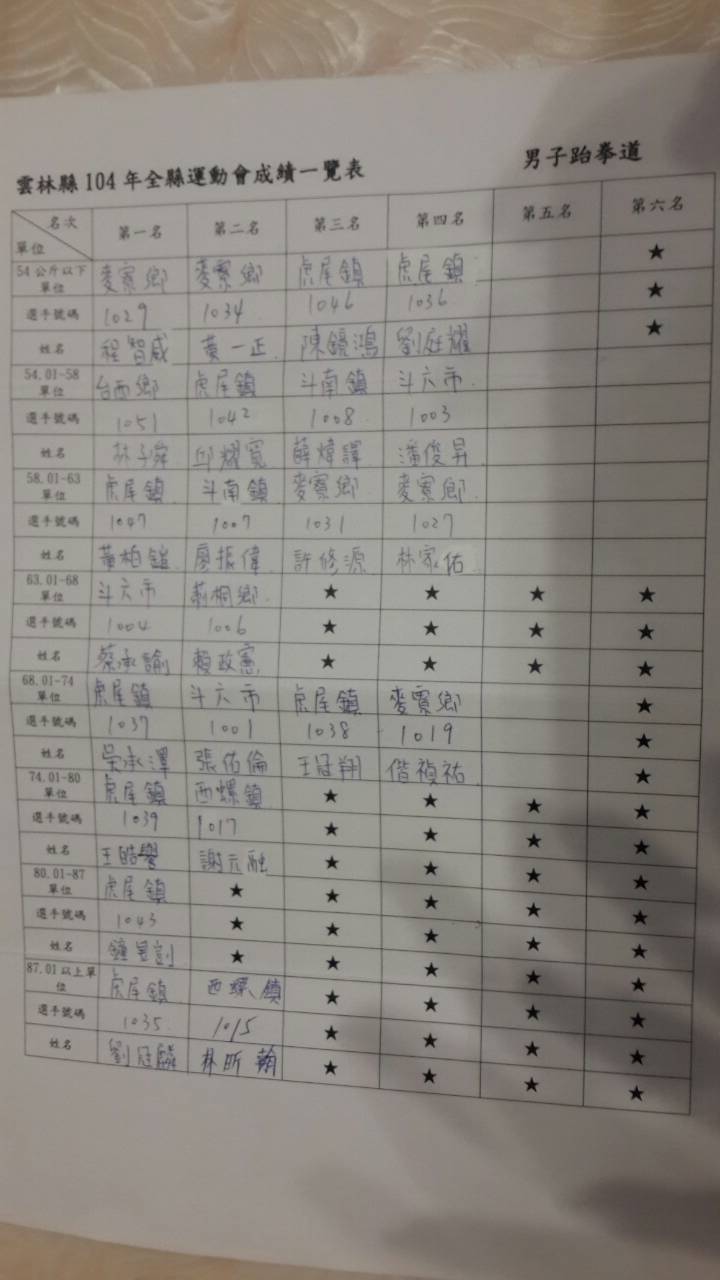 雲林縣 104 年全縣運動會成績一覽表 男子跆拳道
名次 單位 第一名 第二名 第三名 第四名 第五名 第六名
54 公斤以下單位 麥寮鄉 麥寮鄉 虎尾鎮 虎尾鎮 ★
選手號碼 1029 1034 1046 1036 ★
姓名 程智威 黃一正 陳鏡鴻 劉庭耀 ★
54.01-58 單位 台西鄉 虎尾鎮 斗南鎮 斗六市
選手號碼 1051 1042 1008 1003
姓名 林子舜 邱耀寬 薛煒譯 潘俊昇
58.01-63 單位 虎尾鎮 斗南鎮 麥寮鄉 麥寮鄉
選手號碼 1047 1007 1031 1027
姓名 廖振偉 許修源 林家佑
63.01-68 單位 斗六市 莿桐鄉 ★ ★ ★ ★
選手號碼 1004 1006 ★ ★ ★ ★
姓名 蔡承諭 賴政憲 ★ ★ ★ ★
68.01-74 單位 虎尾鎮 斗六市 虎尾鎮 麥寮鄉 ★
選手號碼 1037 1001 1038 1019 ★
姓名 吳承澤 張佑倫 王冠翔 ★
74.01-80 單位 虎尾鎮 西螺鎮 ★ ★ ★ ★
選手號碼 1039 1017 ★ ★ ★ ★
姓名 王皓譽 謝元融 ★ ★ ★ ★
80.01-87 單位 虎尾鎮 ★ ★ ★ ★ ★
選手號碼 1043 ★ ★ ★ ★ ★
姓名 ★ ★ ★ ★ ★
87.01 以上單位 虎尾鎮 西螺鎮 ★ ★ ★ ★
選手號碼 1035 1015 ★ ★ ★ ★
姓名 劉冠麟 林昕翰 ★ ★ ★ ★